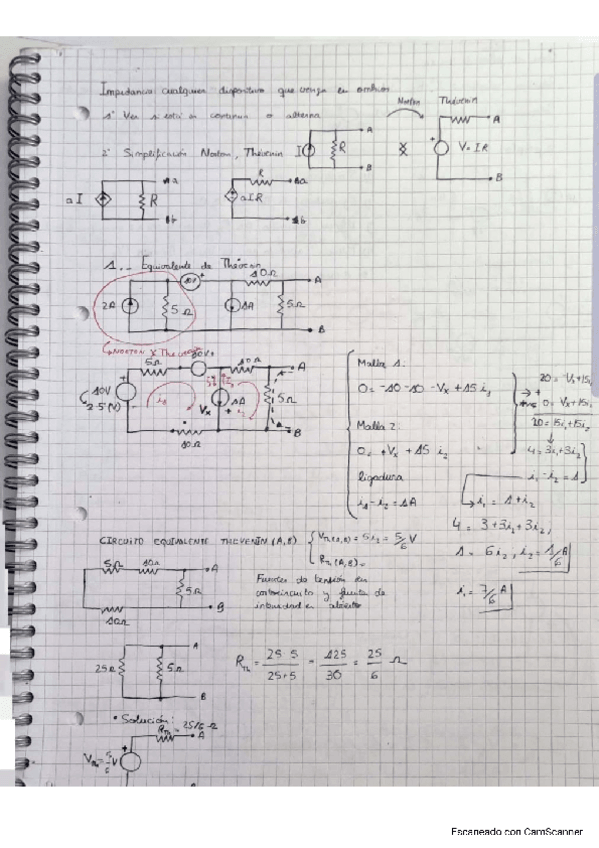 Impedancia cualquier dispositivo que venga en ohmios
1º Ver si está en continua o alterna
Norton Thévenin
2º Simplificación Norton, Thévenin
I R A B
V = IR A B
aI R a b
R aIR a b
1.- Equivalente de Thévenin
2A 5Ω 10V 10Ω 1A 5Ω A B
NORTON X Thevenin
10V 2·5(V) 5Ω 10V 10Ω 1A Vx 5Ω A B
i1 i2
10Ω
Malla 1:
0 = -10 -10 -Vx + 15 i1
Malla 2:
0 = +Vx + 15 i2
ligadura
i1 - i2 = 1A
20 = -Vx + 15i1
0 = Vx + 15i2
20 = 15i1 + 15i2
4 = 3i1 + 3i2
i1 - i2 = 1
i1 = 1 + i2
4 = 3 + 3i2 + 3i2
1 = 6 i2, i2 = 1/6 A
i1 = 7/6 A
CIRCUITO EQUIVALENTE THEVENIN (A,B)
VTh(A,B) = 5i2 = 5/6 V
RTh (A,B) =
Fuentes de tensión en
cortocircuito y fuente de
intensidad en abierto
5Ω 10Ω A
5Ω
10Ω B
25Ω 5Ω A B
RTh = 25·5 / 25+5 = 125 / 30 = 25 / 6 Ω
• Solución:
RTh = 25/6 Ω A
VTh = 5/6 V
Escaneado con CamScanner